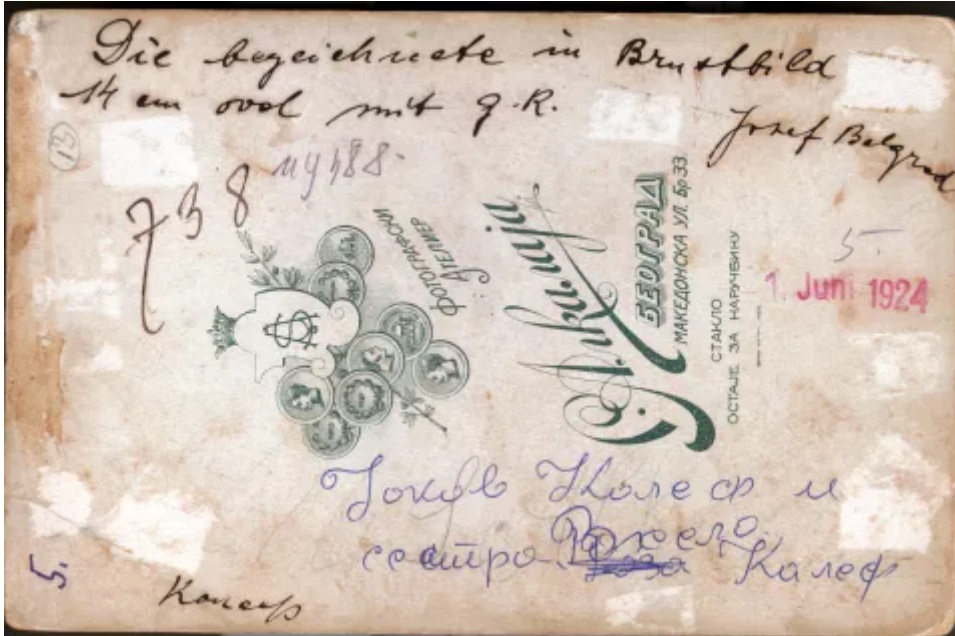 Die bezeichnete in Brustbild
14 cm oval mit g.R.
Josef Belgrad
13
738
ФОТОГРАФСКИ
АТЕЉЕР
БЕОГРАД
МАКЕДОНСКА УЛ. Бр 33.
СТАКЛО
ОСТАЈЕ ЗА НАРУЧБИНУ
5-
1. Juni 1924
Јаков Калеф и
сестра Калеф
5.
Калеф